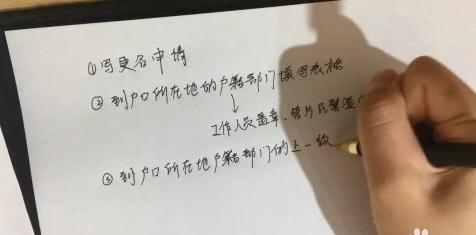 ①写更名申请
②到户口所在地的户籍部门填写表格
↓
工作人员盖章、管片民警签
③到户口所在地户籍部门的上一级